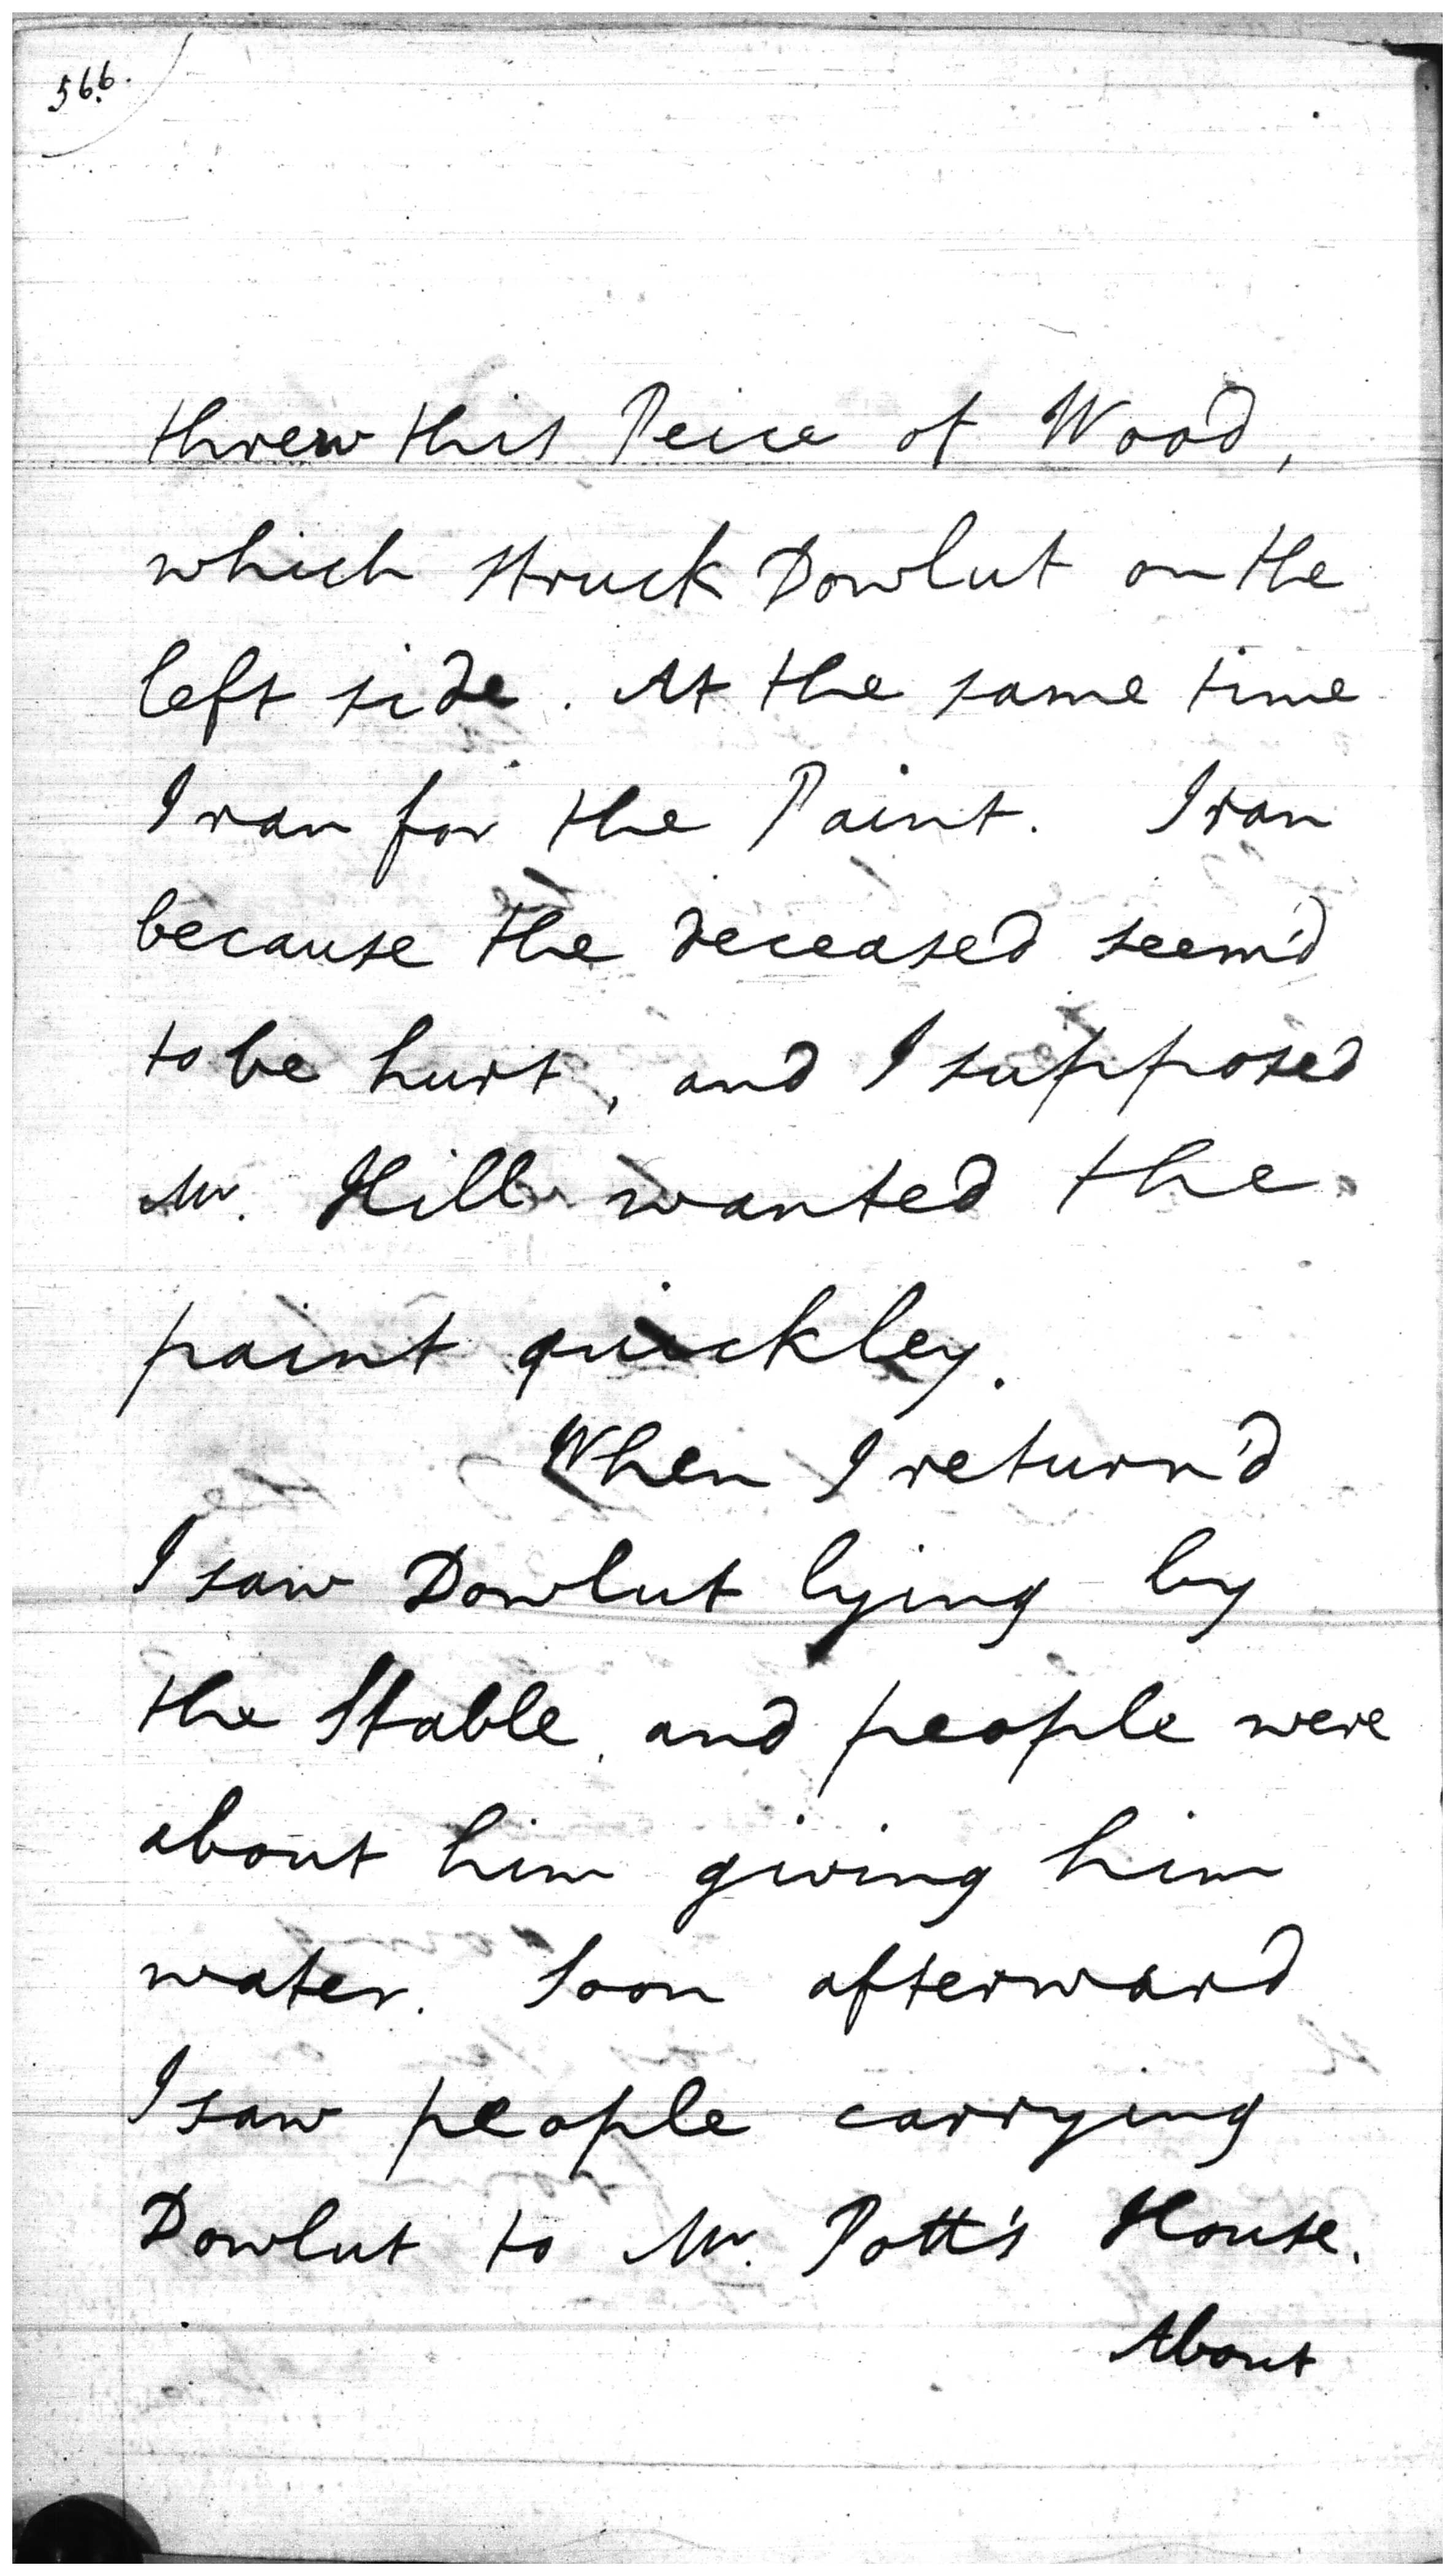 566.
threw this Peice of Wood,
which struck Dowlut on the
left side. At the same time
I ran for the Paint. I ran
because the deceased seem'd
to be hurt, and I supposed
Mr. Hill wanted the
paint quickley.
When I return'd
I saw Dowlut lying by
the Stable, and people were
about him giving him
water. Soon afterward
I saw people carrying
Dowlut to Mr. Pott's House.
About